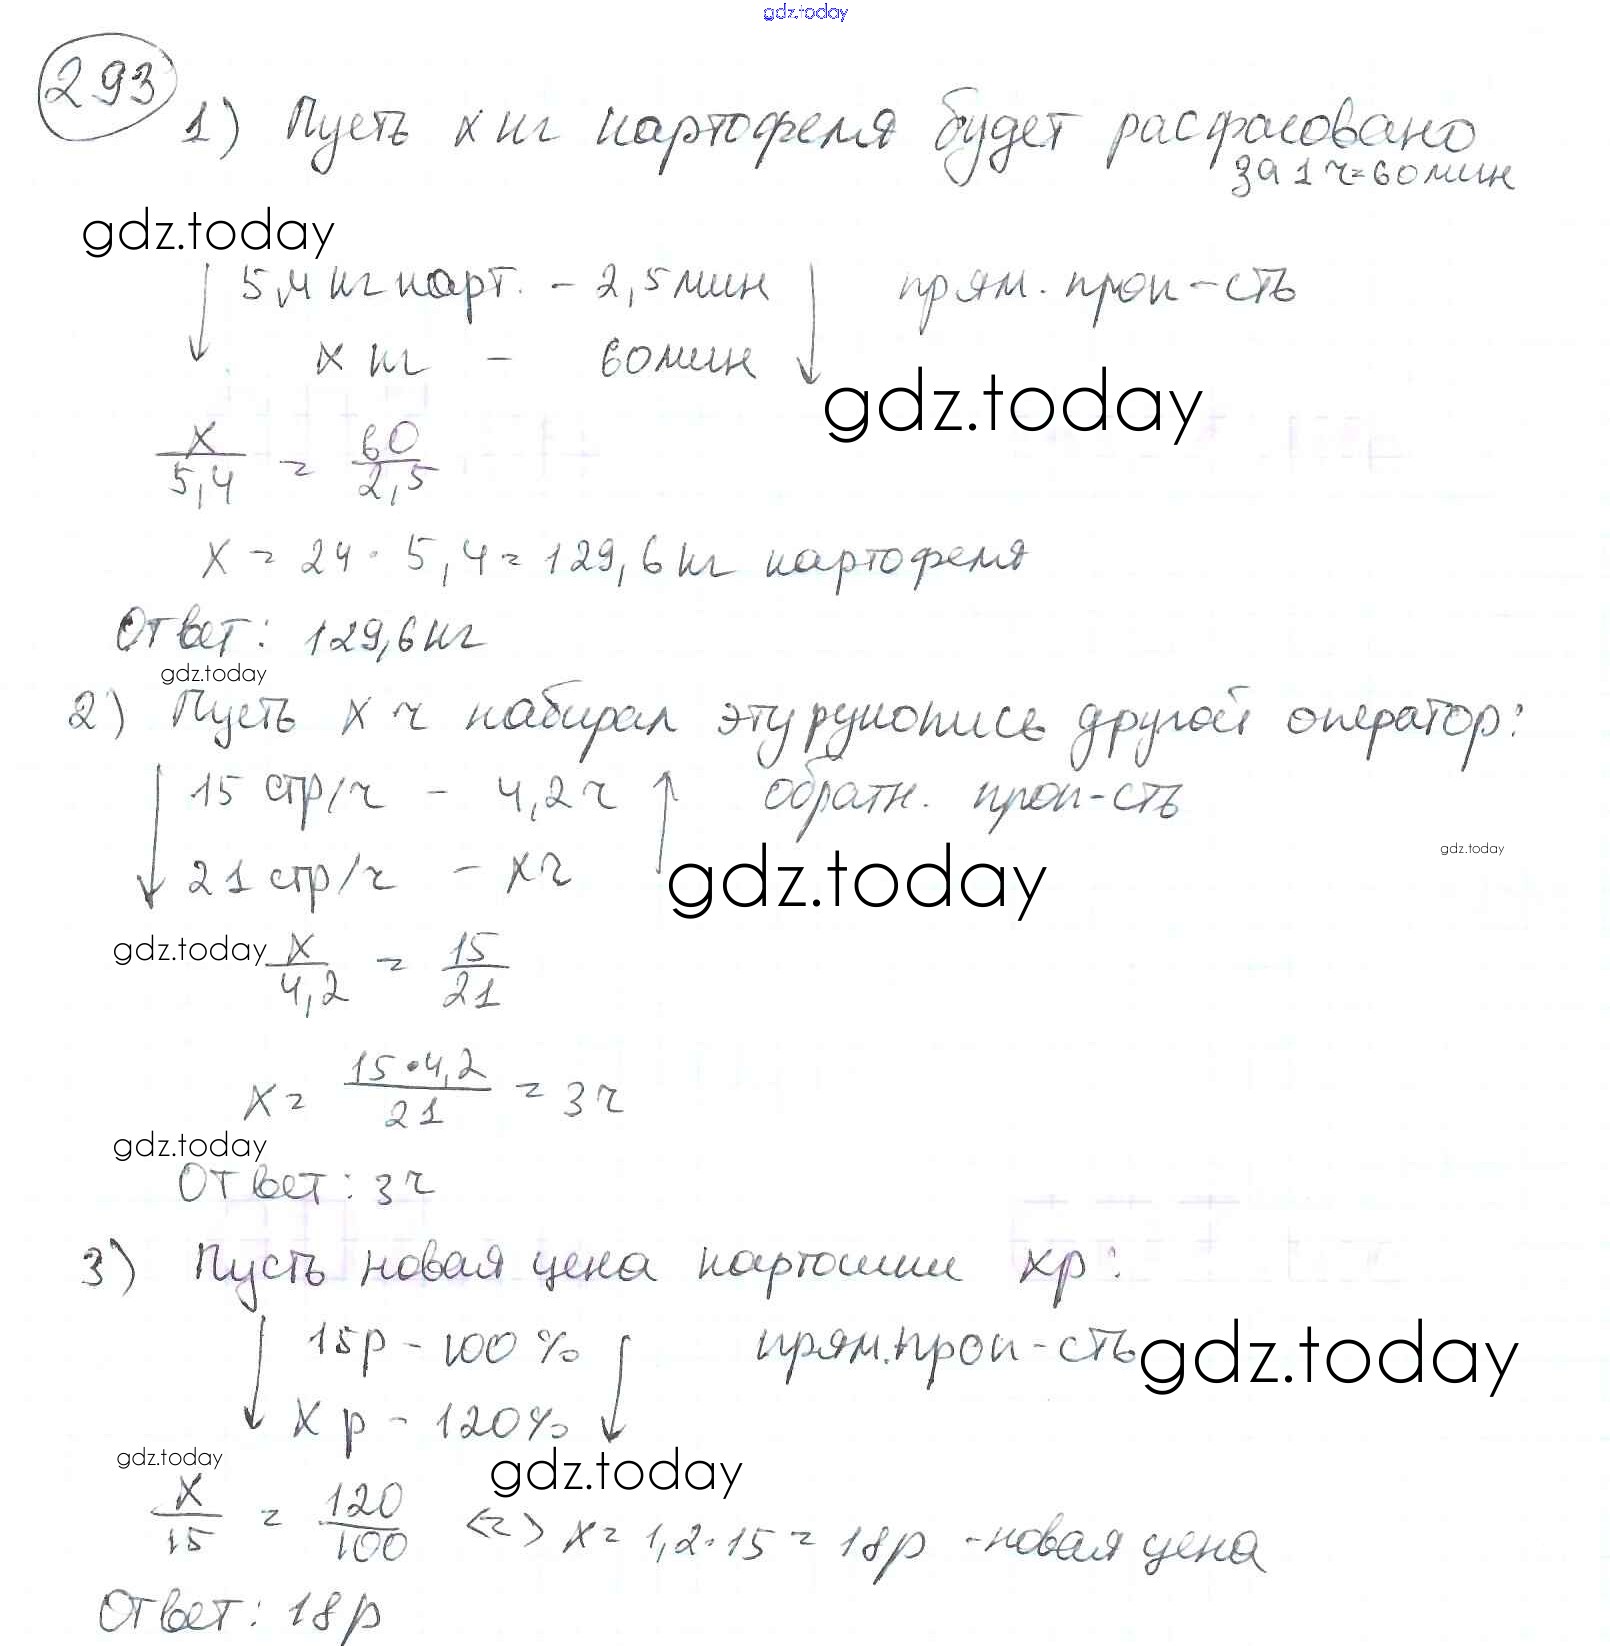 gdz.today
293
1) Пусть x кг картофеля будет расфасовано
за 1 ч = 60 мин
gdz.today
5,4 кг карт. – 2,5 мин прям. проп-сть
x кг – 60 мин
gdz.today
x/5,4 = 60/2,5
x = 24 · 5,4 = 129,6 кг картофеля
Ответ: 129,6 кг
gdz.today
2) Пусть x ч набирал эту рукопись другой оператор:
15 стр/ч – 4,2 ч обратн. проп-сть
gdz.today
21 стр/ч – x ч
gdz.today
gdz.today
x/4,2 = 15/21
x = 15·4,2/21 = 3 ч
gdz.today
Ответ: 3 ч
3) Пусть новая цена картошки x р:
15 р – 100% прям. проп-сть
gdz.today
x р – 120%
gdz.today
gdz.today
x/15 = 120/100 <=> x = 1,2 · 15 = 18 р - новая цена
Ответ: 18 р